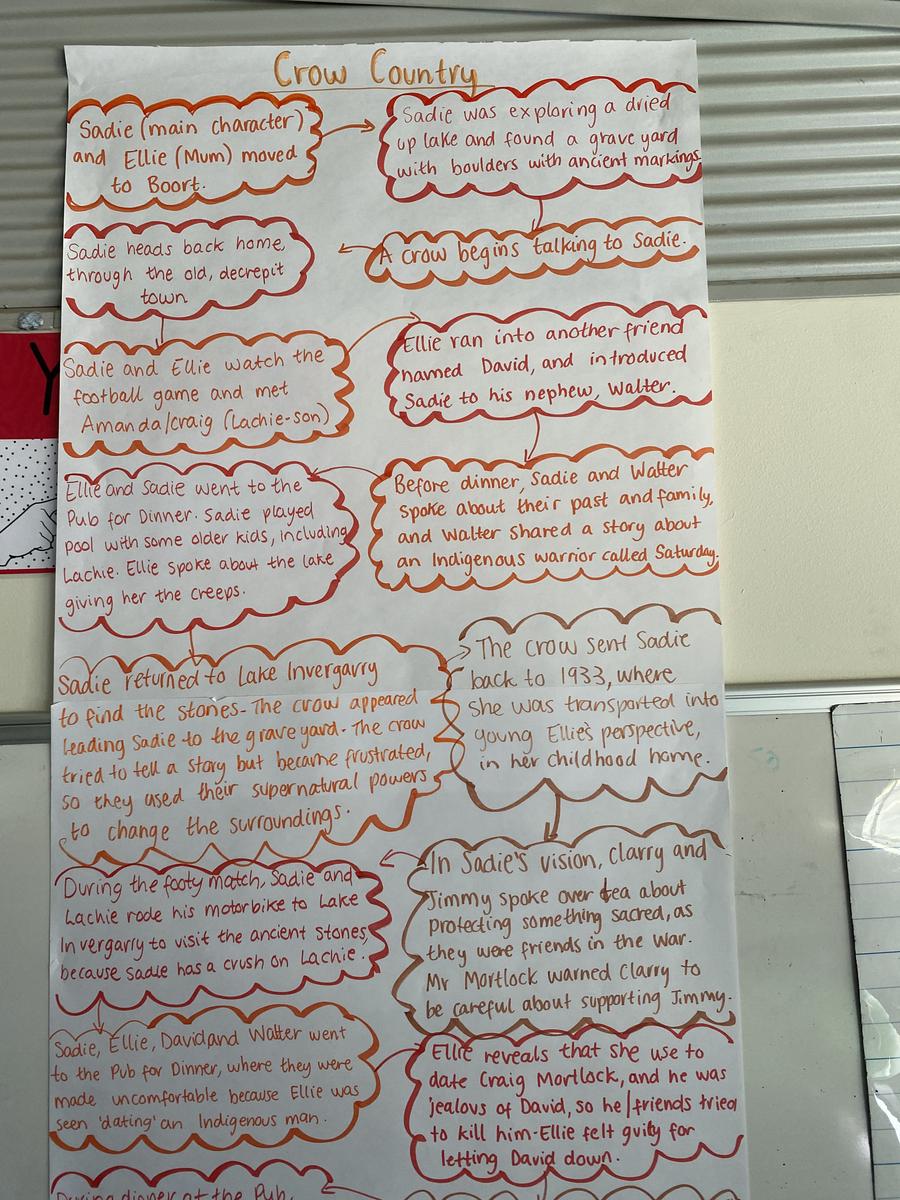 Crow Country
Sadie (main character)
and Ellie (Mum) moved
to Boort.
Sadie was exploring a dried
up lake and found a grave yard
with boulders with ancient markings
A crow begins talking to Sadie.
Sadie heads back home,
through the old, decrepit
town
Sadie and Ellie watch the
football game and met
Amanda/craig (Lachie-son)
Ellie ran into another friend
named David, and introduced
Sadie to his nephew, Walter.
Before dinner, Sadie and Walter
spoke about their past and family,
and Walter shared a story about
an Indigenous warrior called Saturday.
Ellie and Sadie went to the
Pub for Dinner. Sadie played
pool with some older kids, including
Lachie. Ellie spoke about the lake
giving her the creeps.
Sadie returned to Lake Invergarry
to find the stones- The crow appeared
leading Sadie to the grave yard. The crow
tried to tell a story but became frustrated,
so they used their supernatural powers
to change the surroundings.
The crow sent Sadie
back to 1933, where
she was transported into
young Ellie's perspective,
in her childhood home.
In Sadie's vision, Clarry and
Jimmy spoke over tea about
protecting something sacred, as
they were friends in the war.
Mr Mortlock warned Clarry to
be careful about supporting Jimmy.
During the footy match, Sadie and
Lachie rode his motorbike to Lake
Invergarry to visit the ancient stones,
because Sadie has a crush on Lachie.
Sadie, Ellie, David and Walter went
to the Pub for Dinner, where they were
made uncomfortable because Ellie was
seen 'dating' an Indigenous man.
Ellie reveals that she use to
date Craig Mortlock, and he was
jealous of David, so he/friends tried
to kill him-Ellie felt guity for
letting David down.
During dinner at the Pub,